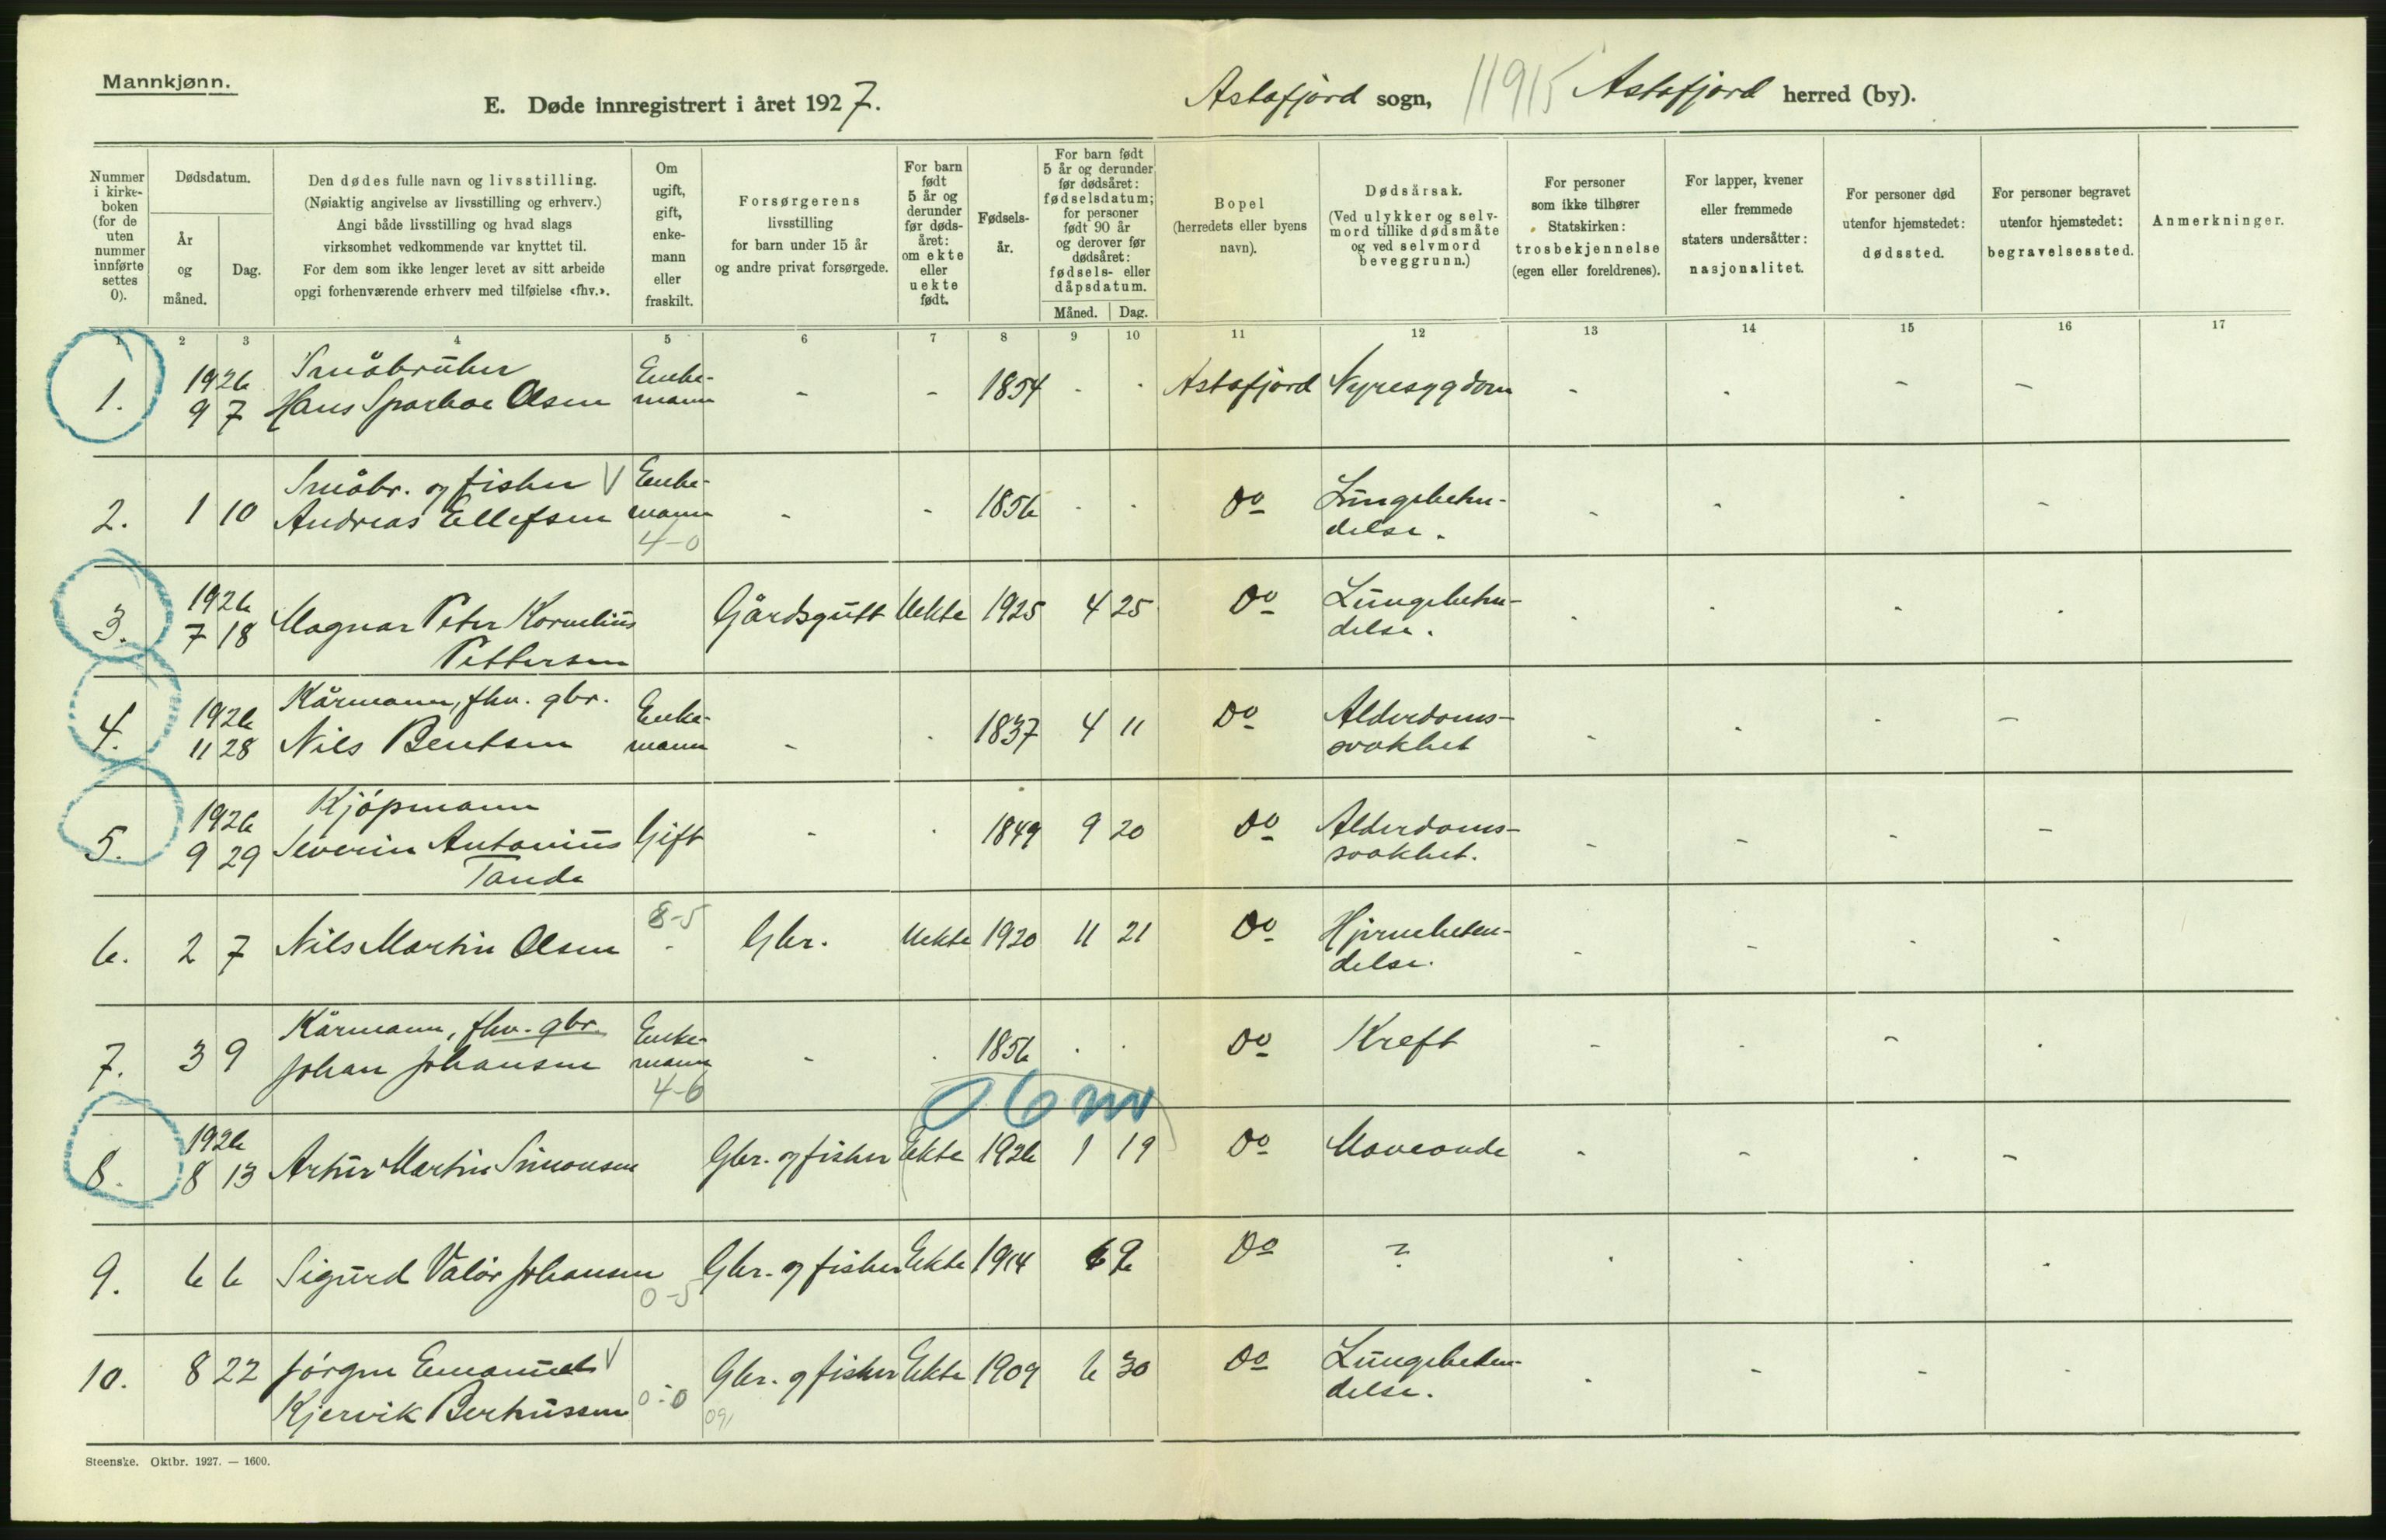 Mannkjønn.
E. Døde innregistrert i året 1927.
Astafjord sogn, 11915 Astafjord herred (by).
Nummer i kirke-boken (for de uten nummer innførte settes 0).
Dødsdatum.
År og måned.
Dag.
Den dødes fulle navn og livsstilling.
(Nøiaktig angivelse av livsstilling og erhverv.)
Angi både livsstilling og hvad slags
virksomhet vedkommende var knyttet til.
For dem som ikke lenger levet av sitt arbeide
opgi forhenværende erhverv med tilføielse «fhv.».
Om ugift, gift, enke-mann eller fraskilt.
Forsørgerens
livsstilling
for barn under 15 år
og andre privat forsørgede.
For barn født 5 år og derunder før døds-året: om ekte eller uekte født.
Fødsels-år.
For barn født 5 år og derunder før dødsåret: fødselsdatum; for personer født 90 år og derover før dødsåret: fødsels- eller dåpsdatum.
Måned. Dag.
Bopel
(herredets eller byens
navn).
Dødsårsak.
(Ved ulykker og selv-
mord tillike dødsmåte
og ved selvmord
beveggrunn.)
For personer
som ikke tilhører
Statskirken:
trosbekjennelse
(egen eller foreldrenes).
For lapper, kvener
eller fremmede
staters undersåtter:
nasjonalitet.
For personer død
utenfor hjemstedet:
dødssted.
For personer begravet
utenfor hjemstedet:
begravelsessted.
Anmerkninger.
1 2 3 4 5 6 7 8 9 10 11 12 13 14 15 16 17
1926 Småbruker Enke-
1. 9 7 Hans Sparboe Olsen mann - - 1854 - - Astafjord Nyresygdom - - - -
Småbr. og fisker V Enke- Lungebeten-
2. 1 10 Andreas Ellefsen mann - - 1856 - - Do delse. - - - -
4-0
1926 Lungebeten-
3. 7 18 Magnar Peter Kornelius Gårdsgutt Uekte 1925 4 25 Do delse. - - - -
Pettersen
1926 Kårmann, fhv. gbr. Enke- Alderdoms-
4. 11 28 Nils Bentsen mann - - 1837 4 11 Do svakhet - - - -
1926 Kjøpmann Alderdoms-
5. 9 29 Severin Antonius Gift - - 1849 9 20 Do svakhet. - - - -
Tande
8-5 Hjernebeten-
6. 2 7 Nils Martin Olsen - Gbr. Uekte 1920 11 21 Do delse. - - - -
Kårmann, fhv. gbr. Enke-
7. 3 9 Johan Johansen mann - - 1856 - - Do Kreft - - - -
4-6 06 m
1926
8. 8 13 Artur Martin Simonsen Gbr. og fisker Ekte 1926 1 19 Do Maveonde - - - -
9. 6 6 Sigurd Valør Johansen Gbr. og fisker Ekte 1914 6 9 Do ? - - - -
0-5
10. 8 22 Jørgen Emanuel V Gbr. og fisker Ekte 1909 6 30 Do Lungebeten-
Kjervik Berhussen 0-0 091 delse. - - - -
Steenske. Oktbr. 1927. — 1600.